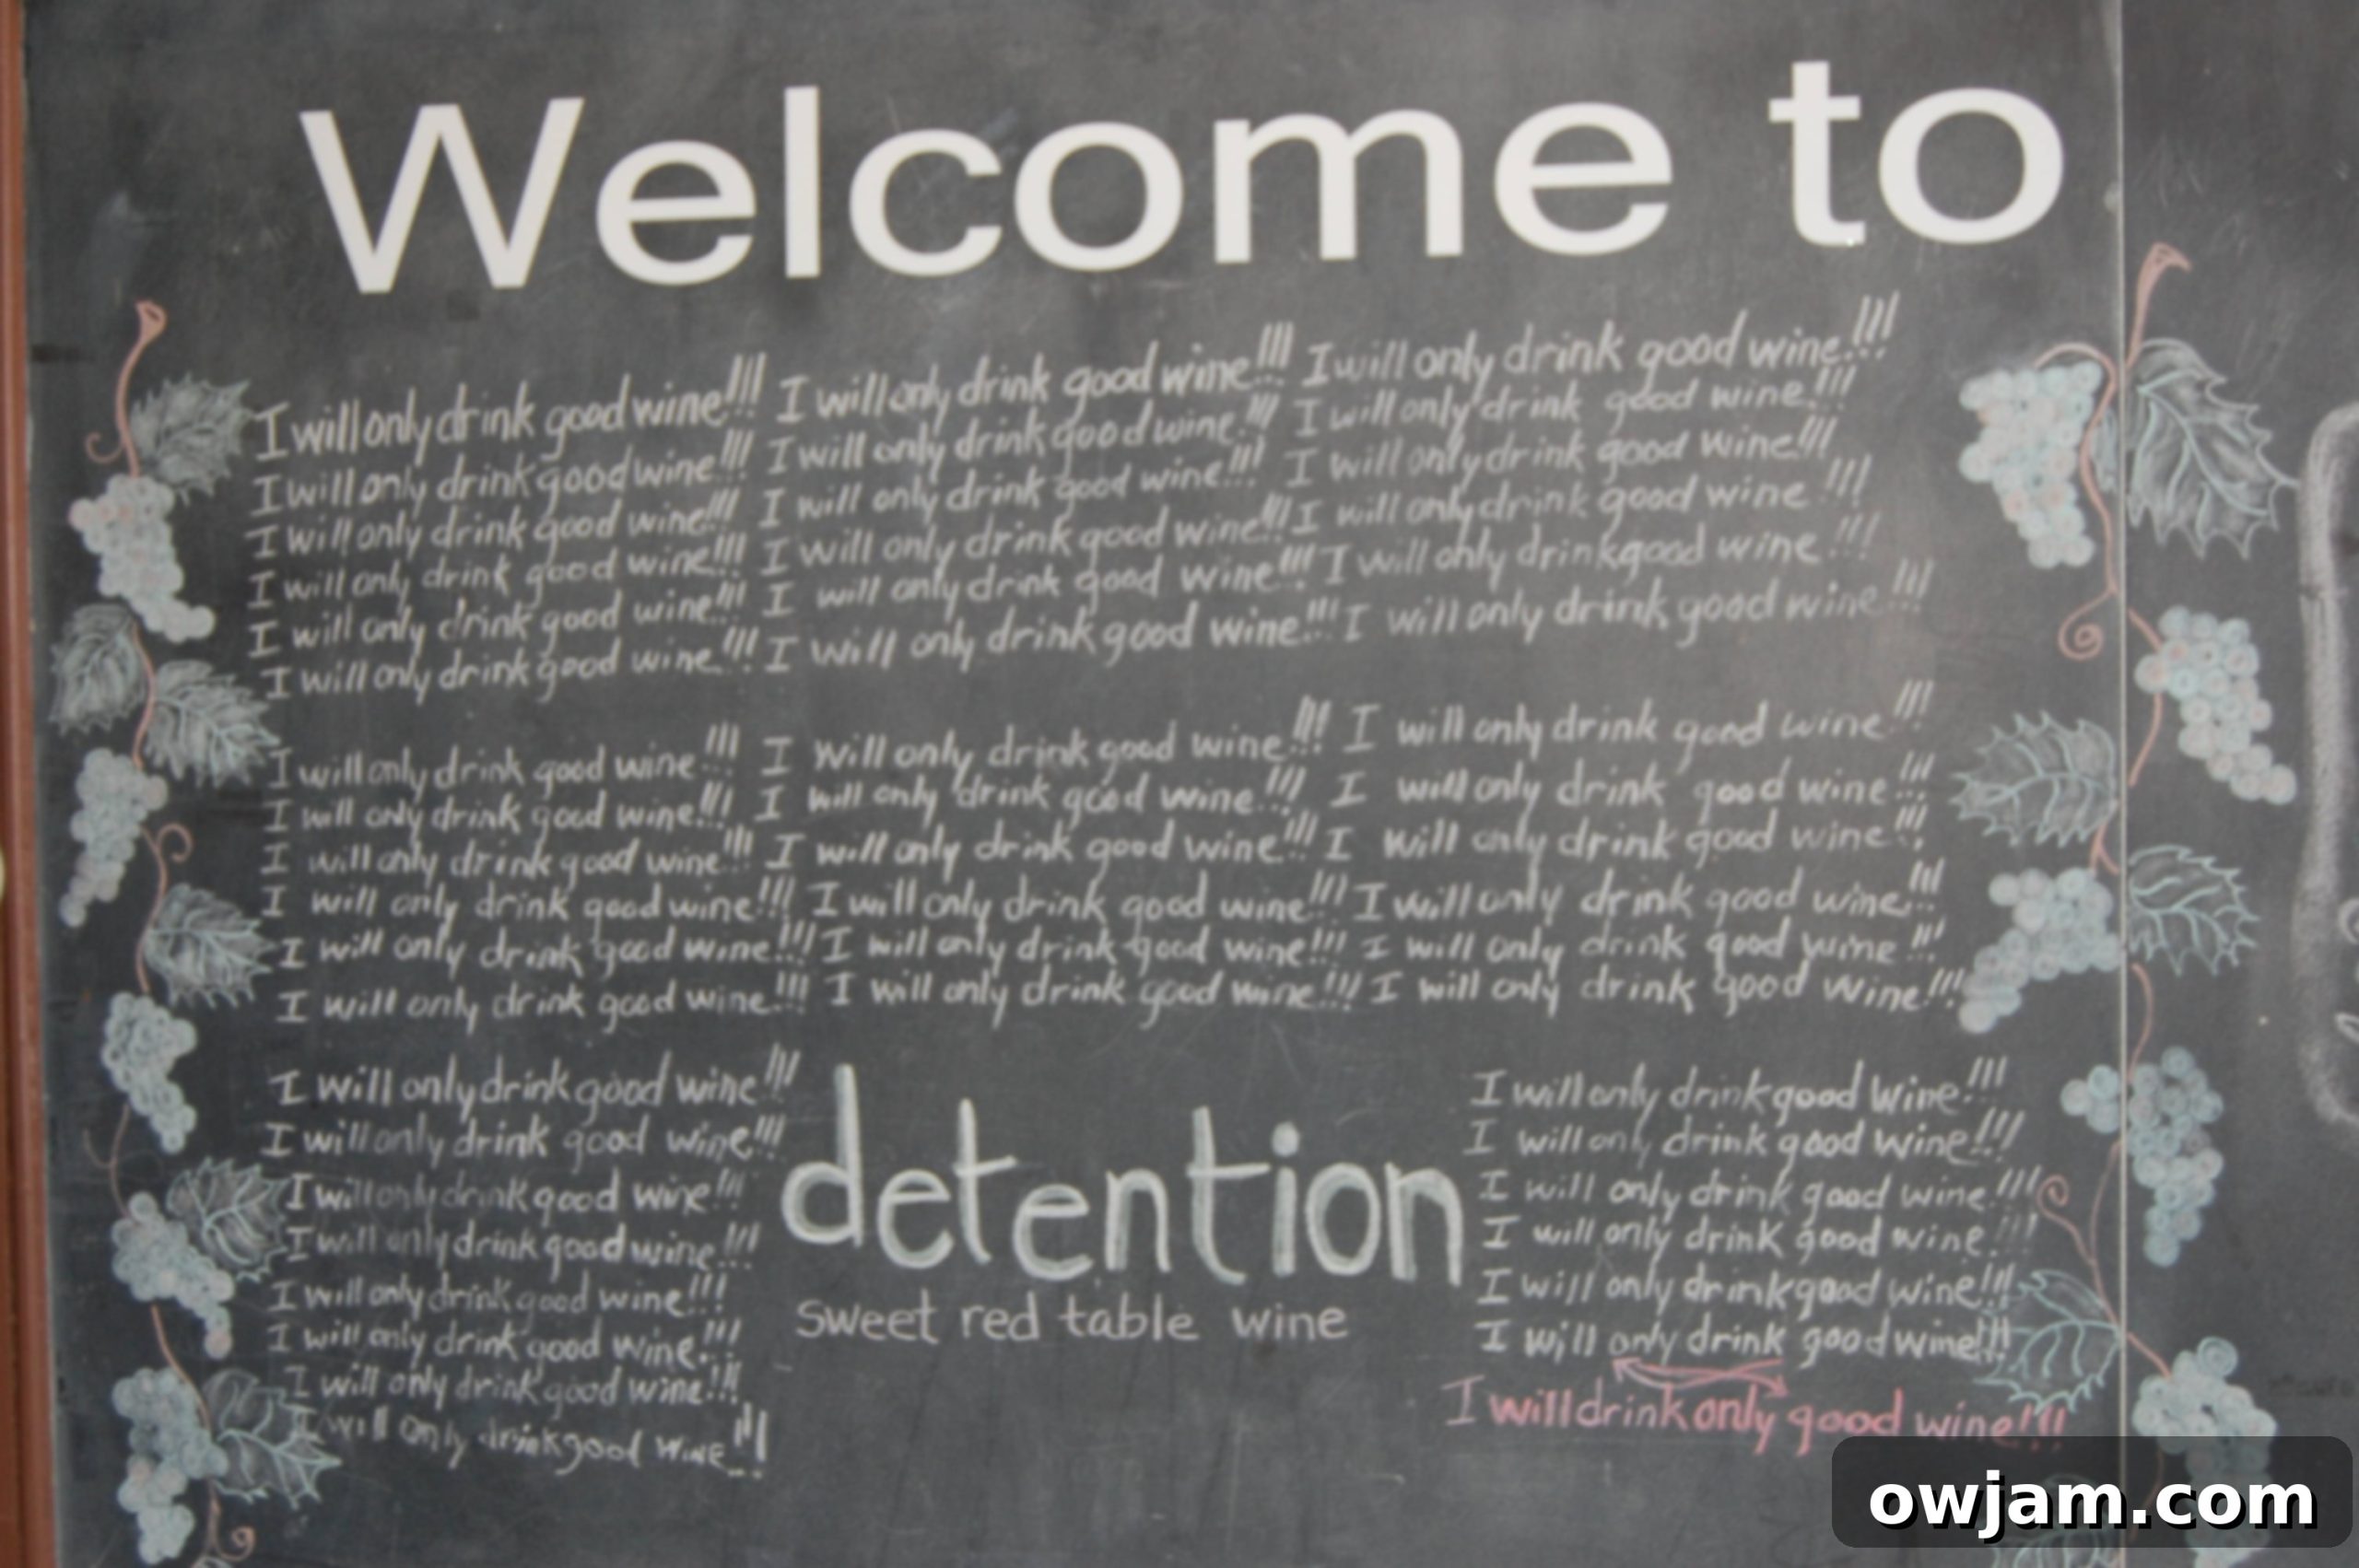 Welcome to
I will only drink good wine!!! I will only drink good wine!!! I will only drink good wine!!!
I will only drink good wine!!! I will only drink good wine!!! I will only drink good wine!!!
I will only drink good wine!!! I will only drink good wine!!! I will only drink good wine!!!
I will only drink good wine!!! I will only drink good wine!!! I will only drink good wine!!!
I will only drink good wine!!! I will only drink good wine!!! I will only drink good wine!!!
I will only drink good wine!!! I will only drink good wine!!! I will only drink good wine!!!
I will only drink good wine!!! I will only drink good wine!!! I will only drink good wine!!!
I will only drink good wine!!! I will only drink good wine!!! I will only drink good wine!!!
I will only drink good wine!!! I will only drink good wine!!! I will only drink good wine!!!
I will only drink good wine!!! I will only drink good wine!!! I will only drink good wine!!!
I will only drink good wine!!! I will only drink good wine!!! I will only drink good wine!!!
I will only drink good wine!!! I will only drink good wine!!! I will only drink good wine!!!
I will only drink good wine!!!
I will only drink good wine!!!
I will only drink good wine!!!
I will only drink good wine!!!
I will only drink good wine!!!
I will only drink good wine!!!
I will only drink good wine!!!
I will only drink good wine!!!
detention
sweet red table wine
I will only drink good wine!!!
I will only drink good wine!!!
I will only drink good wine!!!
I will only drink good wine!!!
I will only drink good wine!!!
I will only drink good wine!!!
I will drink only good wine!!!
owjam.com